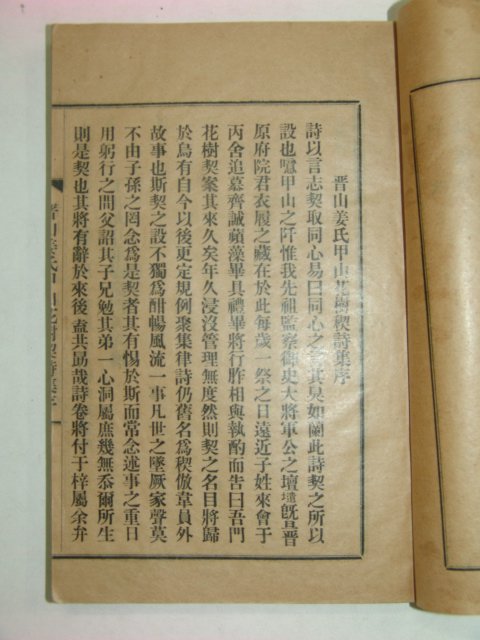 晋山姜氏甲山花樹稧詩集序
詩以言志契取同心易曰同心之言其臭如蘭此詩契之所以
設也噫甲山之阡惟我先祖監察御史大將軍公之壇墠曁晋
原府院君衣履之藏在於此每歲一祭之日遠近子姓來會于
丙舍追慕齊誠蘋藻畢具禮畢將行胙相與執酌而告曰吾門
花樹契案其來久矣年久浸沒管理無度然則契之名目將歸
於烏有自今以後更定規例聚集律詩仍舊名爲稧倣韋員外
故事也斯契之設不獨爲酣暢風流一事凡世之墜厥家聲莫
不由子孫之罔念爲是契者其有惕於斯而常念述事之重日
用躬行之間父詔其子兄勉其弟一心洞屬庶幾無忝爾所生
則是契也其將有辭於來後盍共勗哉詩卷將付于梓屬余弁
晋山姜氏甲山花樹契詩集序